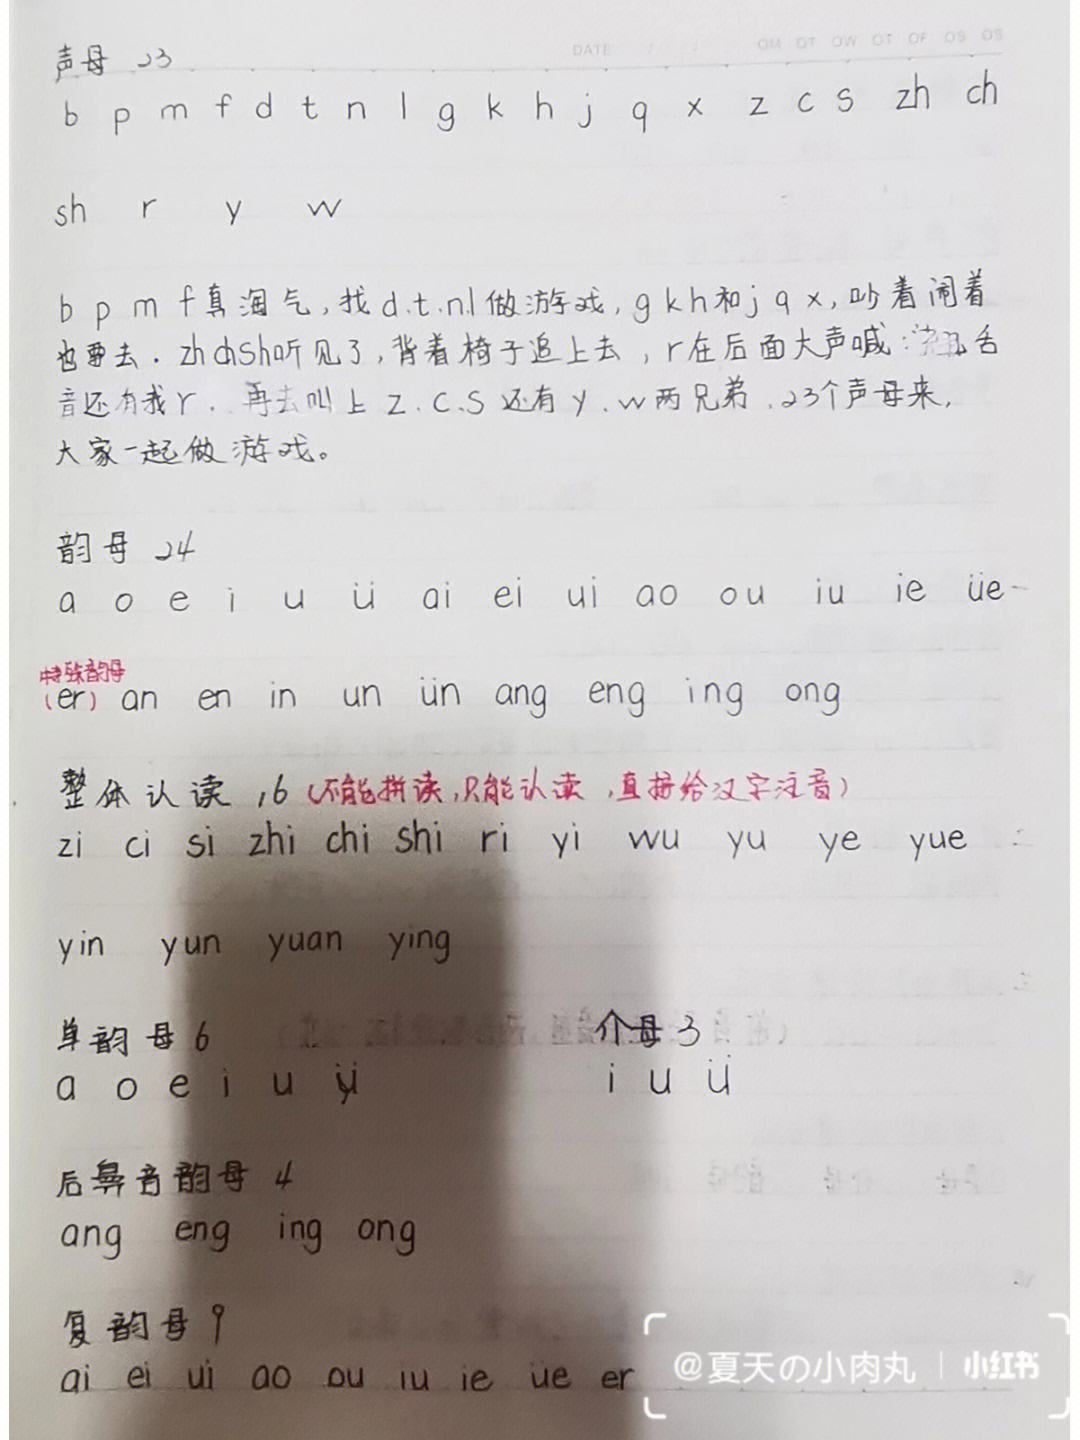 DATE OM OT OW OT OF OS OS
声母 23
b p m f d t n l g k h j q x z c s zh ch
sh r y w
b p m f真淘气,找d.t.n.l做游戏,g k h和j q x,吵着闹着
也要去.zh ch sh听见了,背着椅子追上去,r在后面大声喊:翘舌
音还有我r.再去叫上z.c.s还有y.w两兄弟.23个声母来,
大家一起做游戏。
韵母 24
a o e i u ü ai ei ui ao ou iu ie üe
特殊韵母
(er) an en in un ün ang eng ing ong
整体认读 16(不能拼读,只能认读,直接给汉字注音)
zi ci si zhi chi shi ri yi wu yu ye yue
yin yun yuan ying
单韵母6 介母3
a o e i u ü i u ü
后鼻音韵母 4
ang eng ing ong
复韵母9
ai ei ui ao ou iu ie üe er
@夏天の小肉丸 小红书